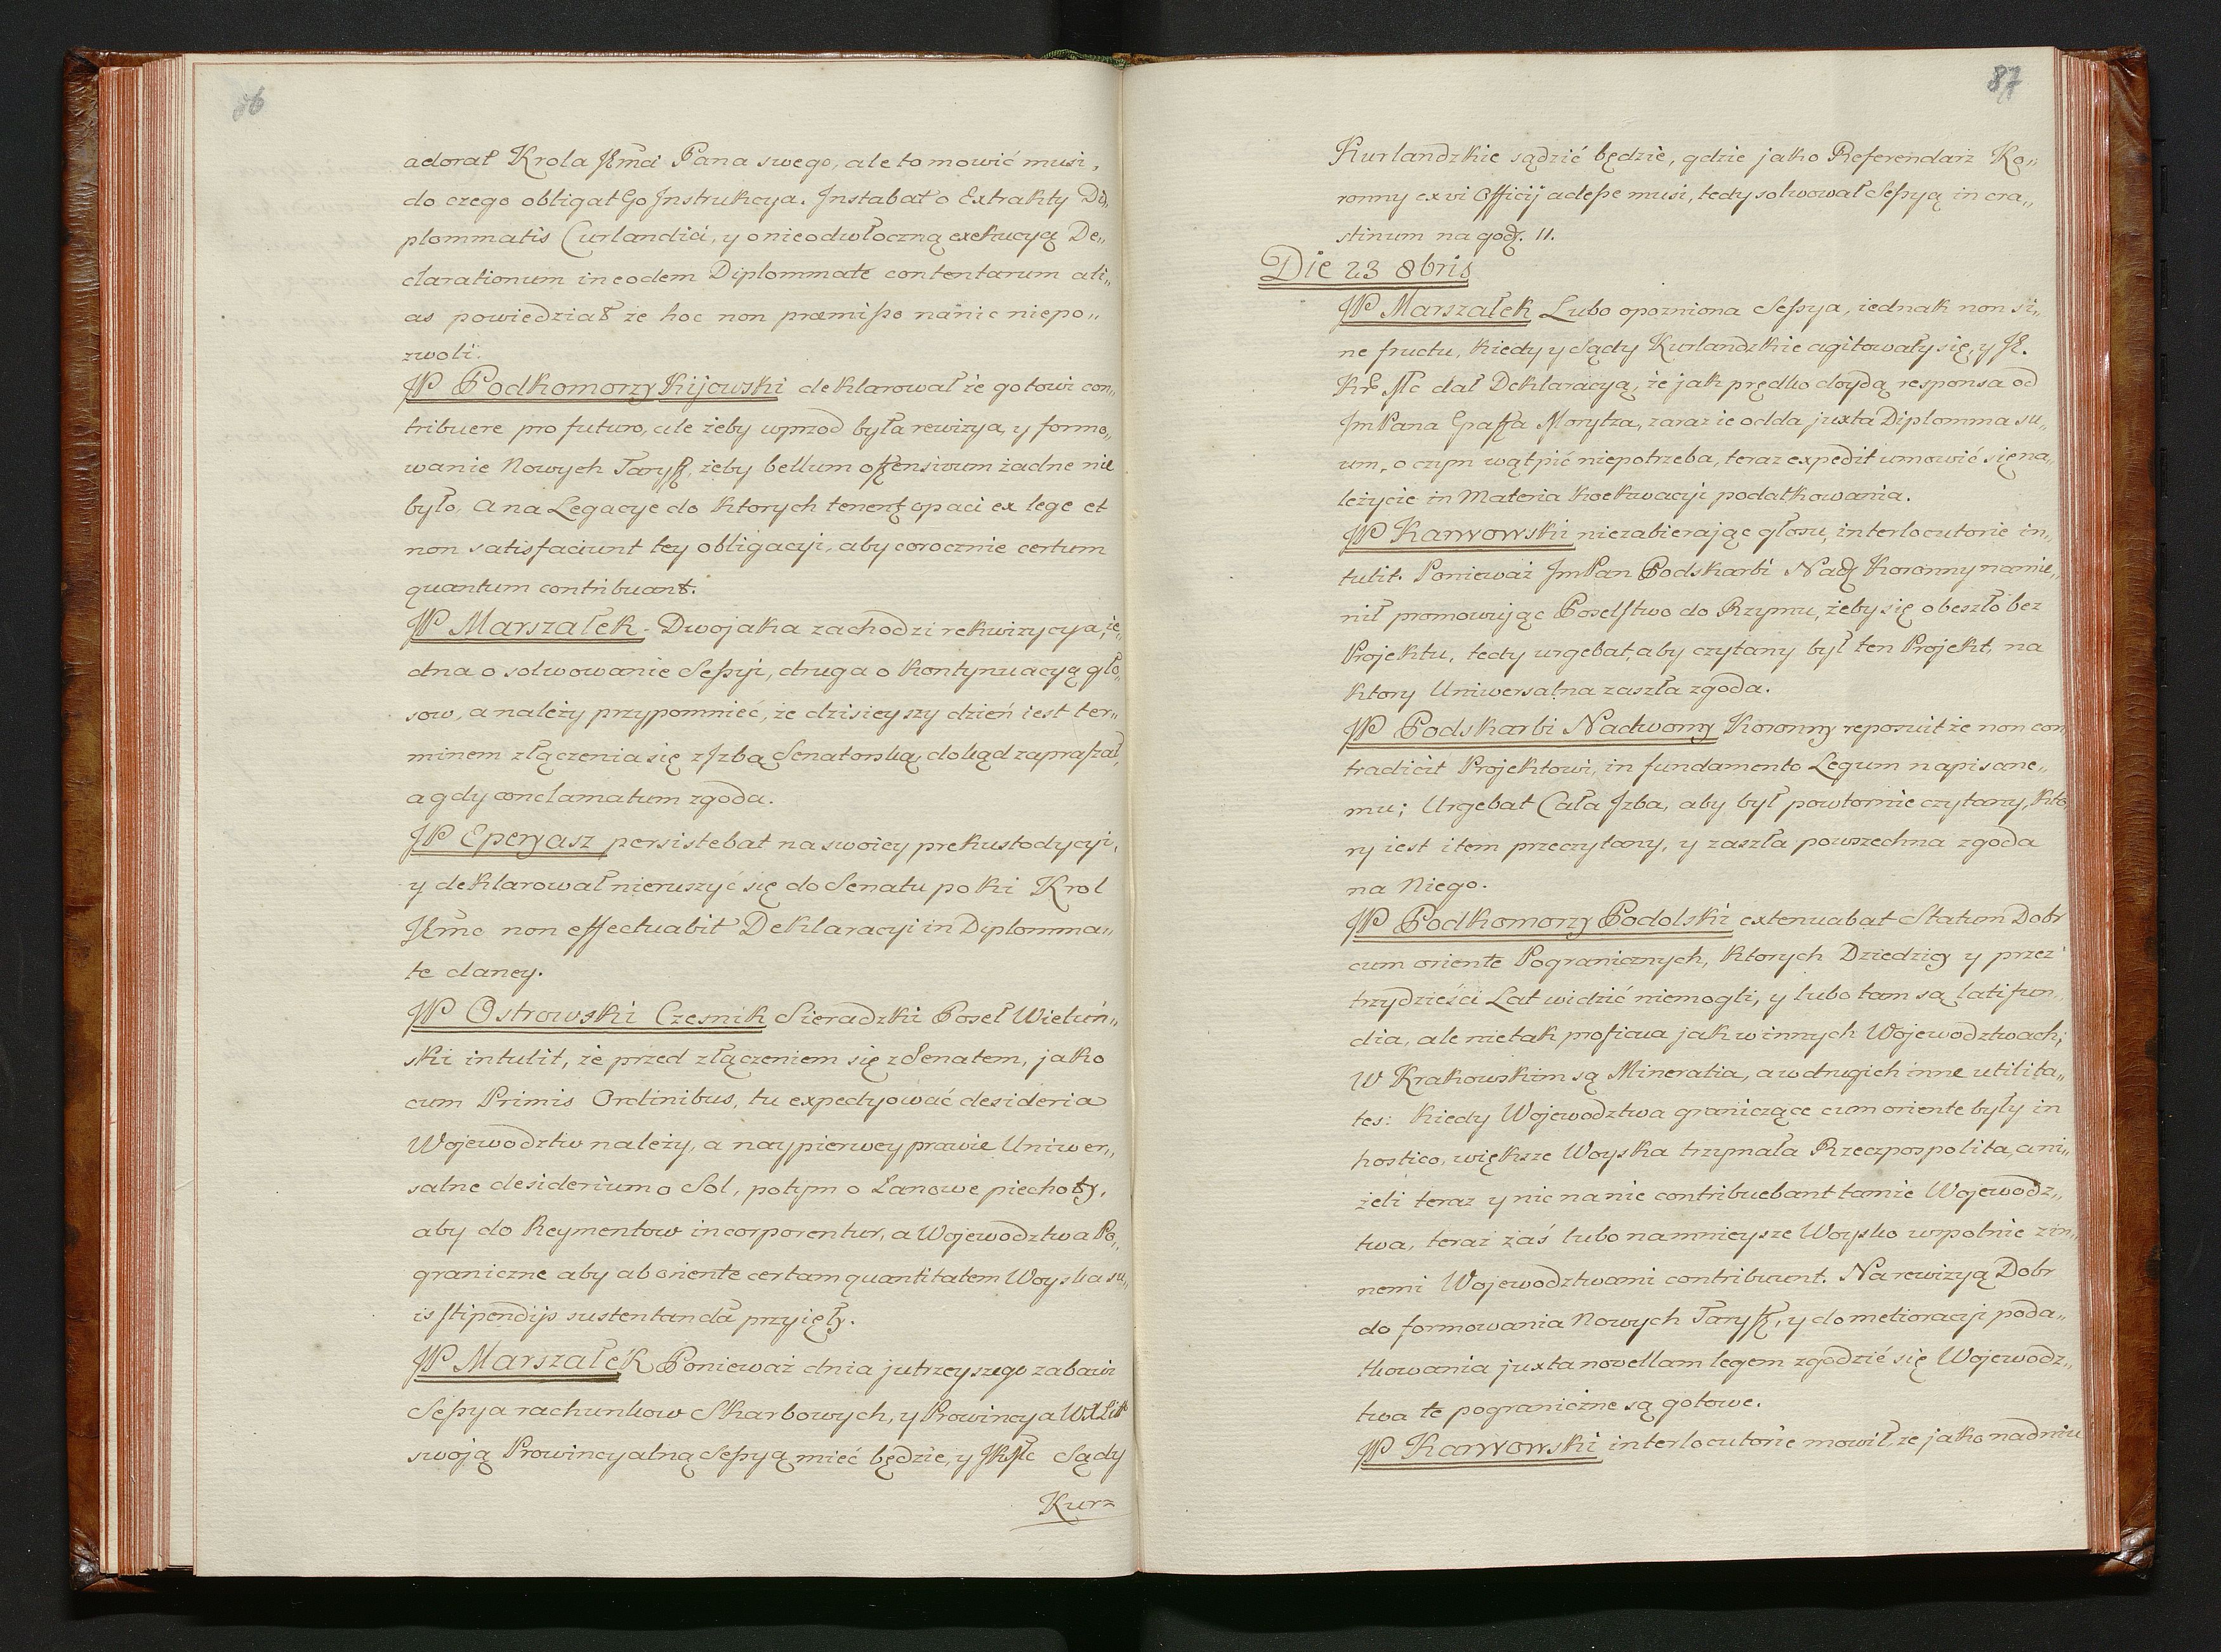 86
adorat Krola JEmći Pana swego, ale to mowić musi,
do czego obligat Go Jnstrukcya. Jnstabat o Extrakty Di„
plommatis Curlandici, y o nieodwłoczną exekucyą De„
clarationum in eodem Diplommate contentarum ali„
as powiedział że hoc non præmisso nanic niepo„
zwoli.
JP Podkomorzy Kijowski deklarował że gotowi con„
tribuere pro futuro, ale żeby wprzod była rewizya, y formo„
wanie Nowych Taryff, żeby bellum offensivum żadne nie
było, a na Legacye do ktorych tenentur opaci ex lege et
non satisfaciunt tey obligacyi, aby corocznie certum
quantum contribuant.
JP Marszałek. Dwojaka zachodzi rekwizycya, ie„
dna o solwowanie Sessyi, druga o kontynuacyą gło„
sow, a należy przypomnieć, że dzisieyszy dzień iest ter„
minem złączenia się z Jzbą Senatorską, dokąd zapraszał,
a gdy conclamatum zgoda.
JP Eperyasz persistebat na swoiey prekustodycyi,
y deklarował nieruszyć się do Senatu poki Krol
JEmć non effectuabit Deklaracyi in Diplomma„
te daney.
JP Ostrowski Czesnik Sieradzki Poseł Wieluń„
ski intulit, że przed złączeniem się z Senatem, jako
cum Primis Ordinibus, tu expedyować desideria
Wojewodztw należy, a naypierwey prawie Uniwer„
salne desiderium o Sol, potym o Łanowe piechoty,
aby do Reymentow incorporentur, a Wojewodztwa Po„
graniczne aby ab oriente certam quantitatem Woyska su„
is stipendijs sustentanda przyięły.
JP Marszałek Ponieważ dnia jutrzeyszego zabawi
Sessya rachunkow Skarbowych, y Prowincya WXLitt
swoją Prowincyalną Sessyą mieć będzie, y JKMć Sądy
Kur=
87
Kurlandzkie sądzić będzie, gdzie jako Referendarz Ko„
ronny ex vi Officij adesse musi, tedy solwował Sessyą in cra„
stinum na godz. 11.
Die 23 8bris
JP Marszałek Lubo opozniona Sessya, iednak non si„
ne fructu, kiedy y Sądy Kurlandzkie agitowały się, y JE.
Kr Mć dał Deklaracyą, że jak prędko doydą responsa od
JmPana Graffa Morytza, zaraz ie odda juxta Diplomma su„
um, o czym wątpić niepotrzeba, teraz expedit umowić się na„
leżycie in Materia koekwacyi podatkowania.
JP Karwowski niezabierając głosu, interlocutorie in„
tulit. Ponieważ JmPan Podskarbi Nadw Koronny namie„
nił promowując Poselstwo do Rzymu, żeby się obeszło bez
Projektu, tedy urgebat, aby czytany był ten Projekt, na
ktory Uniwersalna zaszła zgoda.
JP Podskarbi Nadworny Koronny reposuit że non con
tradicit Projektowi, in fundamento Legum napisane„
mu; Urgebat Cała Jzba, aby był powtornie czytany, kto
ry iest item przeczytany, y zaszła powszechna zgoda
na Niego.
JP Podkomorzy Podolski extenuabat Statum Dobr
cum oriente Pogranicznych, ktorych Dziedzicy y przez
trzydzieści Lat widzić niemogli, y lubo tam są latifun„
dia, ale nie tak proficua jak w innych Wojewodztwach;
W Krakowskim są Mineralia, a w drugich inne utilita„
tes: kiedy Wojewodztwa graniczące cum oriente były in
hostico, większe Woyska trzymała Rzeczpospolita, ani„
żeli teraz y nic na nie contribuebant tamie Wojewodz„
twa, teraz zaś lubo namnieysze Woysko wspolnie z in„
nemi Wojewodztwami contribuunt. Na rewizyą Dobr
do formowania Nowych Taryff, y do melioracji poda„
tkowania juxta novellam legem zgodzić się Wojewodz„
twa te pograniczne są gotowe.
JP Karwowski interlocutorie mowił, że jako nadniu